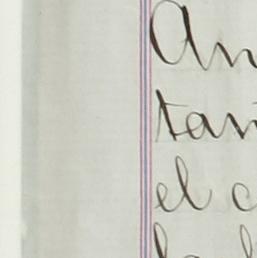 An
tan
el c